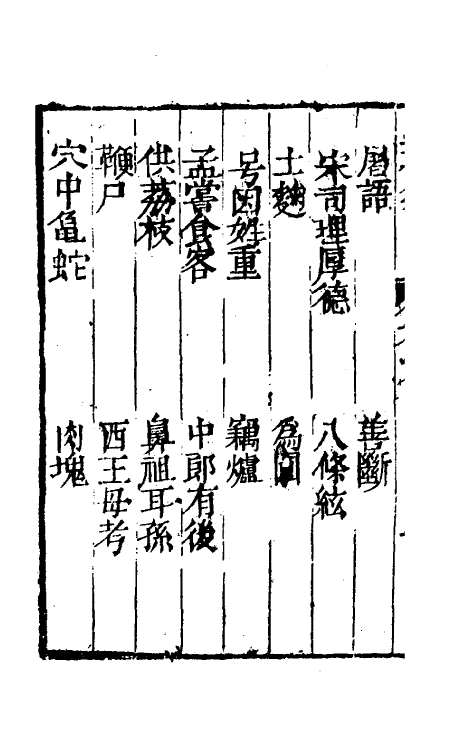 唇語 善斷
宋司理厚德 八條絃
土麪 為
号因姓重 竊爐
孟嘗食客 中郎有後
供荔枝 鼻祖耳孫
鞭尸 西王母考
穴中龜蛇 肉塊